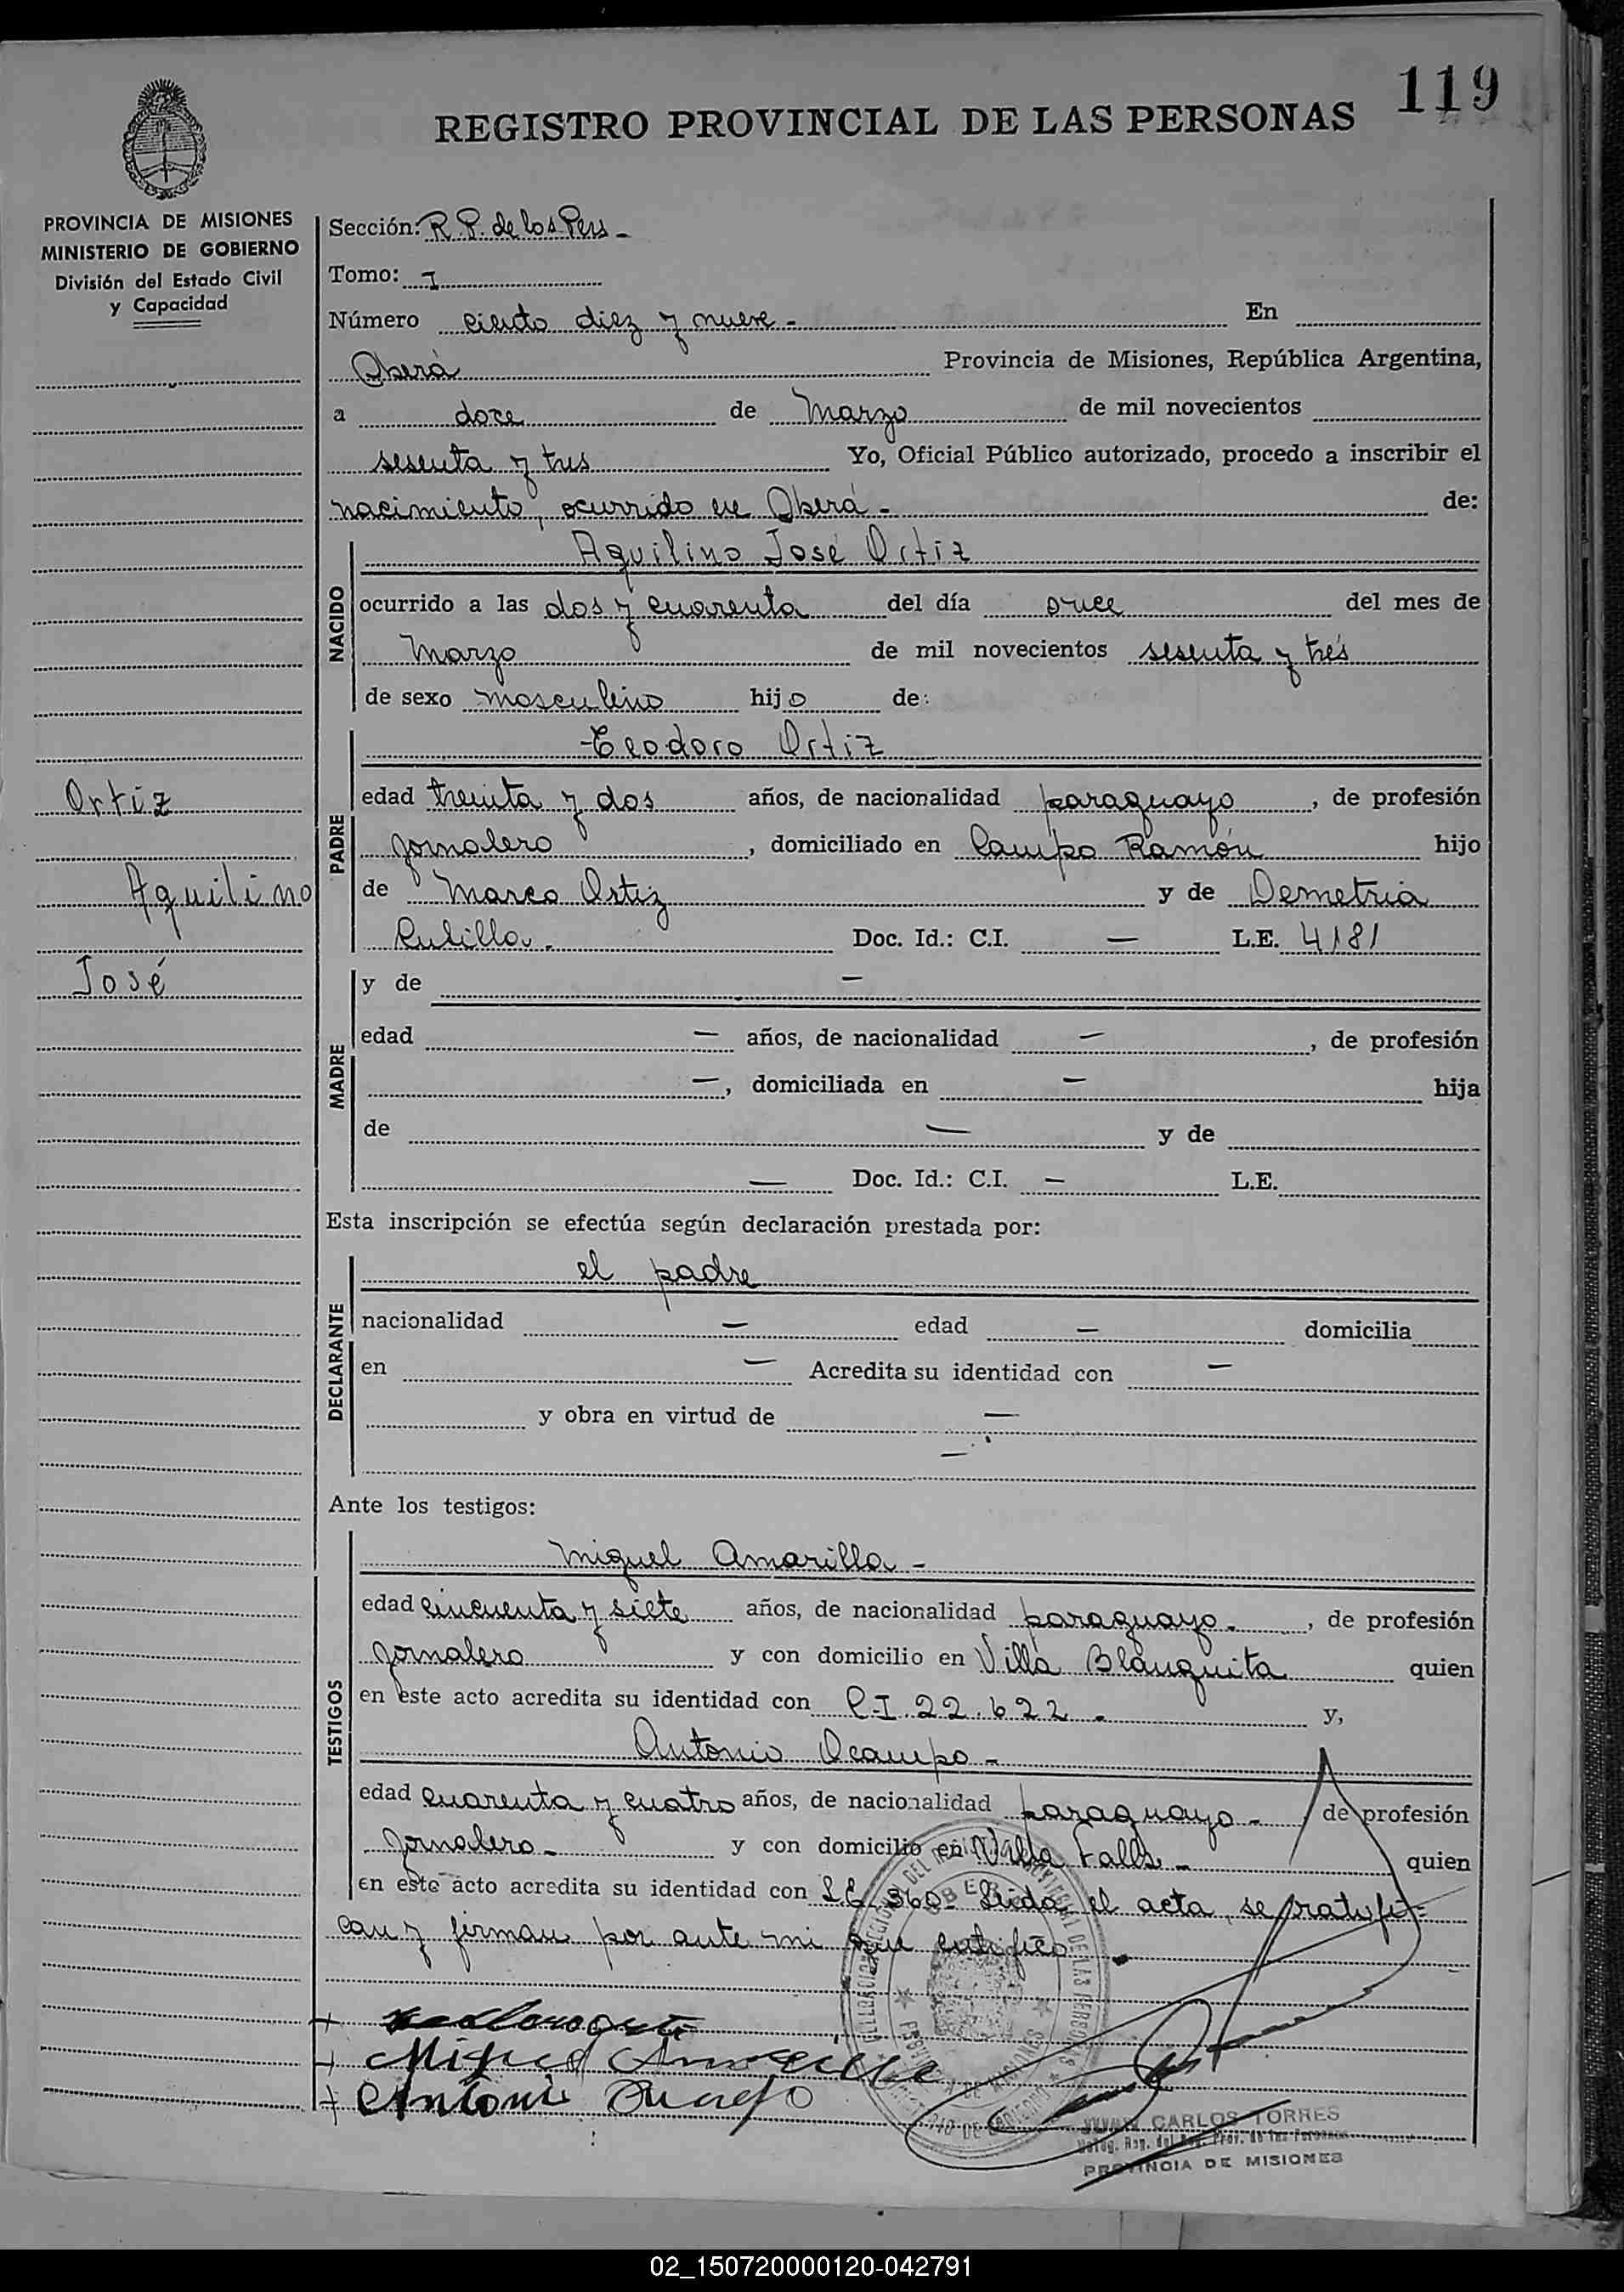 119
REGISTRO PROVINCIAL DE LAS PERSONAS
PROVINCIA DE MISIONES
MINISTERIO DE GOBIERNO
División del Estado Civil
y Capacidad
Ortiz
Aquilino
José
Sección: R. P. de los Pers -
Tomo: I
Número ciento diez y nueve - En
Oberá Provincia de Misiones, República Argentina,
a doce de Marzo de mil novecientos
sesenta y tres Yo, Oficial Público autorizado, procedo a inscribir el
nacimiento, ocurrido en Oberá - de:
NACIDO
Aquilino José Ortiz
ocurrido a las dos y cuarenta del día once del mes de
Marzo de mil novecientos sesenta y trés
de sexo masculino hijo de:
PADRE
Teodoro Ortiz
edad treinta y dos años, de nacionalidad paraguayo, de profesión
Jornalero, domiciliado en Campo Ramón hijo
de Marco Ortiz y de Demetria
Doc. Id.: C.I. — L.E. 4181
MADRE
y de —
edad — años, de nacionalidad —, de profesión
—, domiciliada en — hija
de — y de
— Doc. Id.: C.I. — L.E.
Esta inscripción se efectúa según declaración prestada por:
DECLARANTE
el padre
nacionalidad — edad — domicilia
en — Acredita su identidad con —
y obra en virtud de —
—
Ante los testigos:
TESTIGOS
Miguel Amarilla -
edad cincuenta y siete años, de nacionalidad paraguayo -, de profesión
Jornalero y con domicilio en Villa Blanquita quien
en este acto acredita su identidad con C.I. 22.622 - y,
Antonio Ocampo -
edad cuarenta y cuatro años, de nacionalidad paraguayo - de profesión
Jornalero - y con domicilio en Villa Falls - quien
en este acto acredita su identidad con L E 360 - Leida el acta, se ratifi=
can y firman por ante mi que certifico
Miguel Amarilla
Antoni
JUAN CARLOS TORRES
PROVINCIA DE MISIONES
02_150720000120-042791